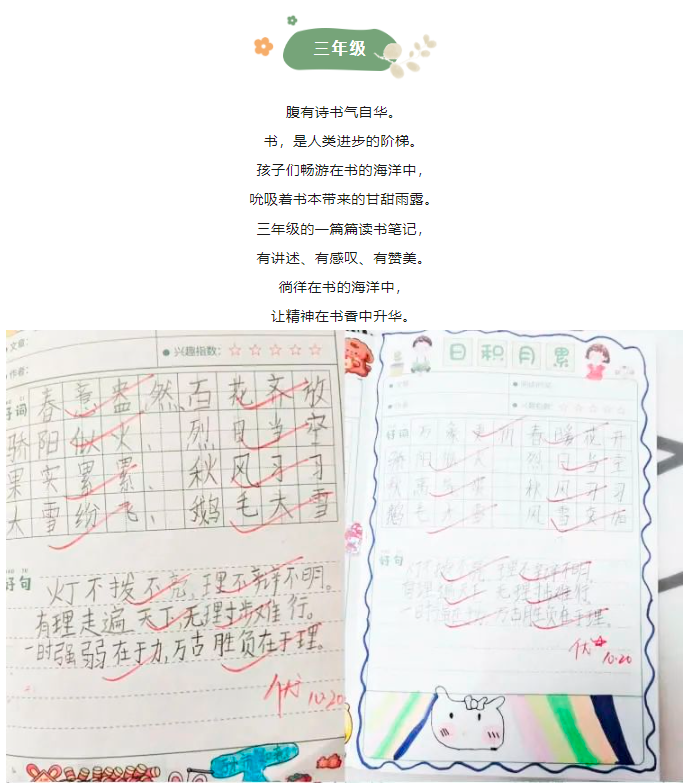 三年级
腹有诗书气自华。
书，是人类进步的阶梯。
孩子们畅游在书的海洋中，
吮吸着书本带来的甘甜雨露。
三年级的一篇篇读书笔记，
有讲述、有感叹、有赞美。
徜徉在书的海洋中，
让精神在书香中升华。
文章：
兴趣指数：☆☆☆☆☆
作者：
好词
春意盎然、百花齐放
骄阳似火、烈日当空
果实累累、秋风习习
大雪纷飞、鹅毛大雪
好句
灯不拨不亮，理不辩不明。
有理走遍天下，无理寸步难行。
一时强弱在于力，万古胜负在于理。
优
10.20
日积月累
好词
春暖花开
烈日当空
秋风习习
鹅毛大雪
好句
灯不拨不亮，理不辩不明。
有理走遍天下，无理寸步难行。
一时强弱在于力，万古胜负在于理。
优
10.20